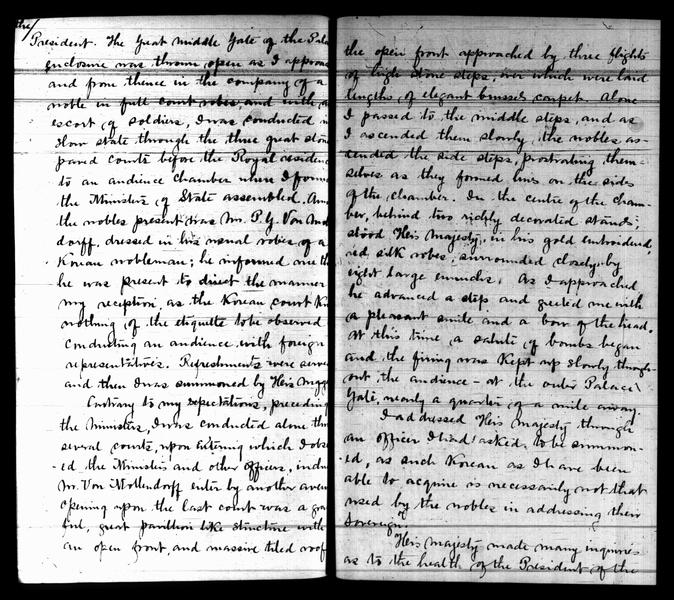 the
President. The Great middle Gate of the Pala
enclosure was thrown open as I approa
and from thence in the company of a
noble in full court robes, and with a
escort of soldiers, I was conducted i
slow state through the three great ston
paved courts before the Royal residenc
to an audience chamber when I found
the Ministers of State assembled. Amo
the nobles present was Mr. P. G. Von Mol
dorff, dressed in his usual robes of a
Korean nobleman; he informed me th
he was present to direct the manner
my reception, as the Korean court Kn
nothing of the etiquette to be observed
conducting an audience with foreign
representatives. Refreshments were serve
and then I was summoned by His Maj
Contrary to my expectations, preceding
the Ministers, I was conducted alone thr
several courts, upon entering which I obs
ed the Ministers and other officers, includ
Mr. Von Mollendorff enter by another aven
opening upon the last court was a gra
ful, great pavillion like structure with
an open front, and massive tiled roof
the open front approached by three flights
of high stone steps, over which were laid
lengths of elegant brussels carpet. Alone
I passed to the middle steps, and as
I ascended them slowly, the nobles as-
cended the side steps, prostrating them-
selves as they formed lines on the sides
of the chamber. In the centre of the cham-
ber, behind two richly decorated stands,
stood His Majesty, in his gold embroidered,
red silk robes, surrounded closely by
eight large eunuchs. As I approached
he advanced a step and greeted me with
a pleasant smile and a bow of the head.
At this time a salute of bombs began
and the firing was Kept up slowly through-
out the audience - at the outer Palace
Gate, nearly a quarter of a mile away.
I addressed His Majesty through
an officer I had asked to be summon-
ed, as such Korean as I have been
able to acquire is necessarily not that
used by the nobles in addressing their
Sovereign.
His Majesty made many inquiries
as to the health of the President of the